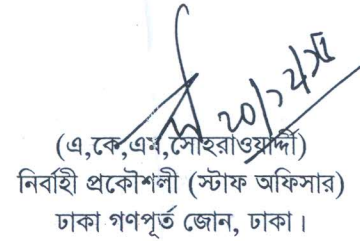 ২০/১২/২১
(এ,কে,এম,সোহরাওয়ার্দ্দী)
নির্বাহী প্রকৌশলী (স্টাফ অফিসার)
ঢাকা গণপূর্ত জোন, ঢাকা।